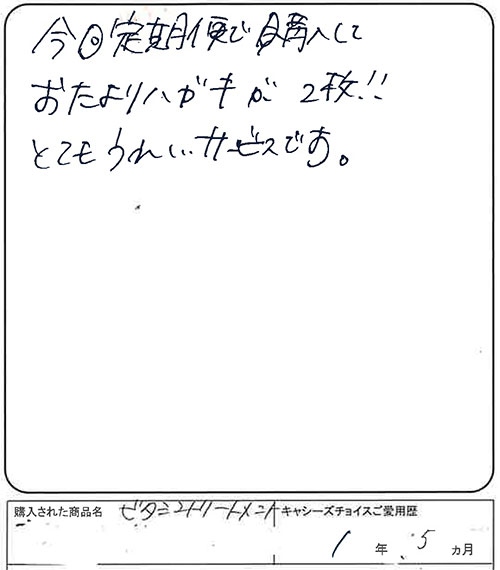 今回定期便で購入して
おたよりハガキが2枚!!
とてもうれしいサービスです。
購入された商品名 ビタミントリートメント キャシーズチョイスご愛用歴
1年5ヵ月